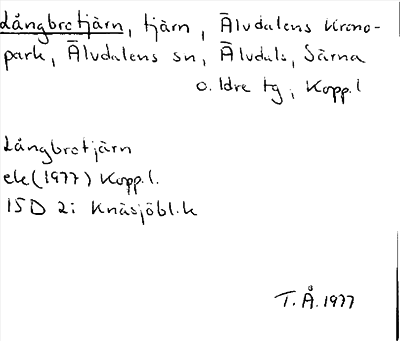 Långbrotjärn, tjärn, Älvdalens Krono-
park, Älvdalens sn, Älvdals, Särna
o. Idre tg, Kopp. l
Långbrotjärn
ek (1977) Kopp. l.
15D 2i Knäsjöbl.k
T. Å. 1977